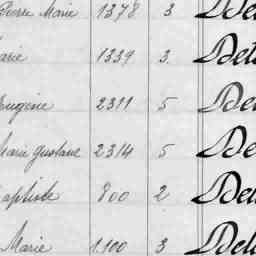 Pierre Marie 1378 3 Del
Marie 1339 3 Del
Eugène 2311 5 Del
Marie Gustave 2314 5 Del
Baptiste 800 2 Del
Marie 1.100 3 Del